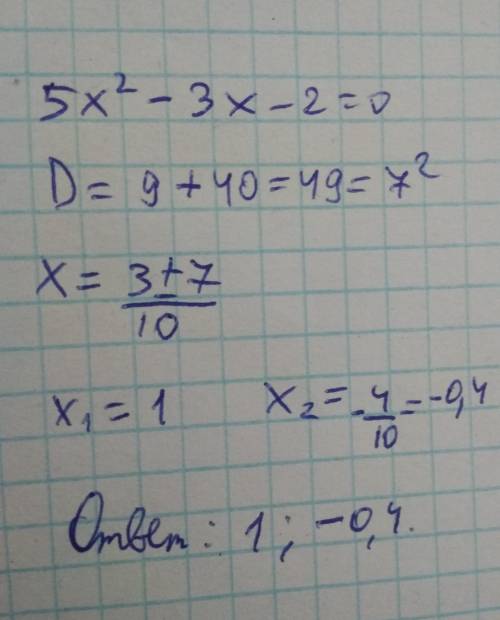 5x² - 3x - 2 = 0
D = 9 + 40 = 49 = 7²
x = (3 ± 7)/10
x₁ = 1 x₂ = -4/10 = -0,4
Ответ: 1; -0,4.